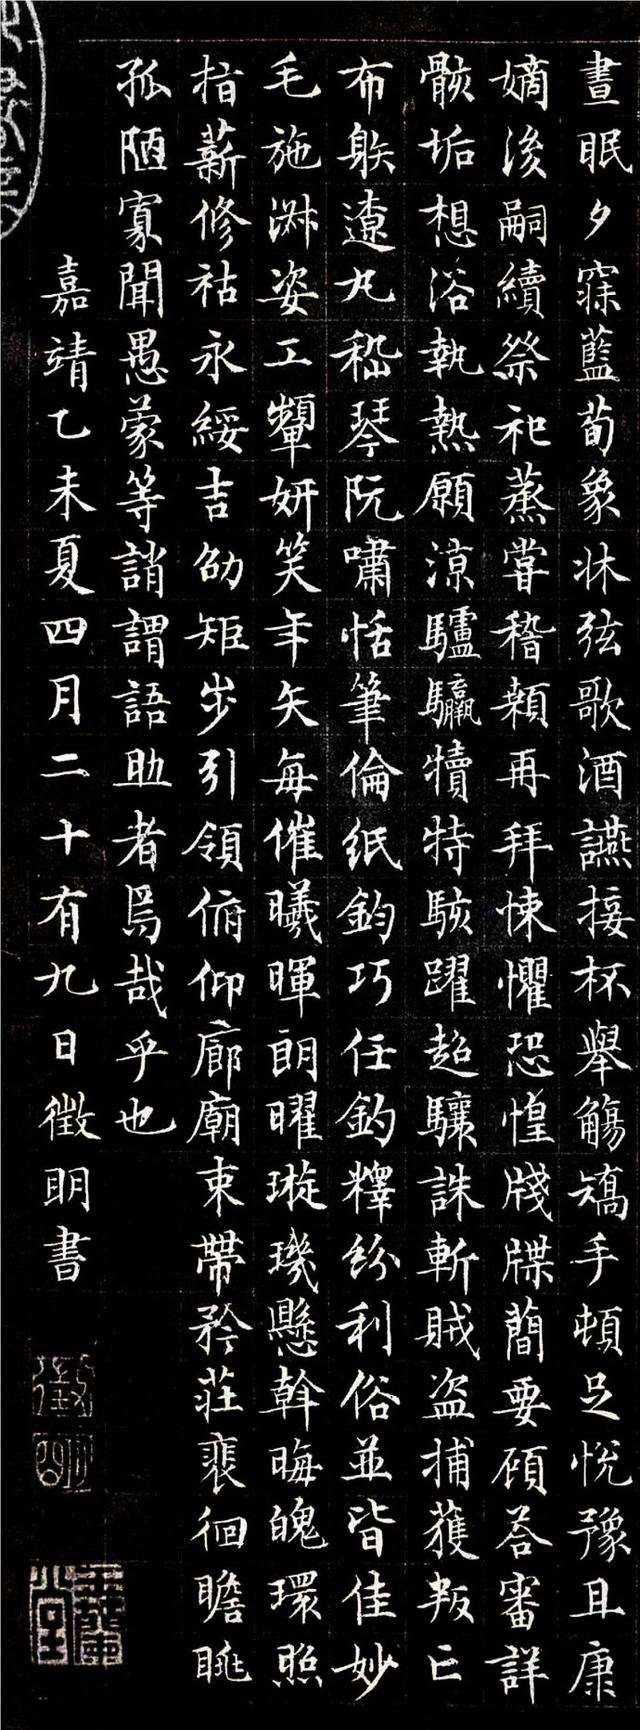 晝眠夕寐藍荀象牀弦歌酒讌接杯舉觴矯手頓足悅豫且康
嫡後嗣續祭祀蒸嘗稽顙再拜悚懼恐惶牋牒簡要顧荅審詳
骸垢想浴執熱願涼驢騾犢特駭躍超驤誅斬賊盗捕獲叛亡
布躲遼丸嵇琴阮嘯恬筆倫紙鈞巧任釣釋紛利俗並皆佳妙
毛施淋姿工顰妍笑年矢每催曦暉朗曜璇璣懸斡晦魄環照
指薪修祜永綏吉劭矩步引領俯仰廊廟束帶矜莊裴徊瞻眺
孤陋寡聞愚蒙等誚謂語助者焉哉乎也
嘉靖乙未夏四月二十有九日徵明書
徵明
玉蘭堂